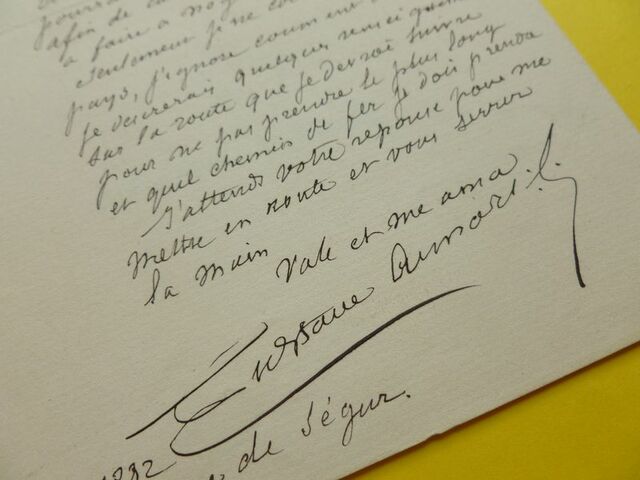 afin de
à faire à
Seulement je ne
pays, j'ignore comment
je désirerais quelques renseignements
sur la route que je devrai suivre
pour ne pas prendre le plus long
et quel chemin de fer je dois prendre
J'attends votre réponse pour me
mettre en route et vous serrer
la main
Vale et me ama
Gustave
de Ségur.